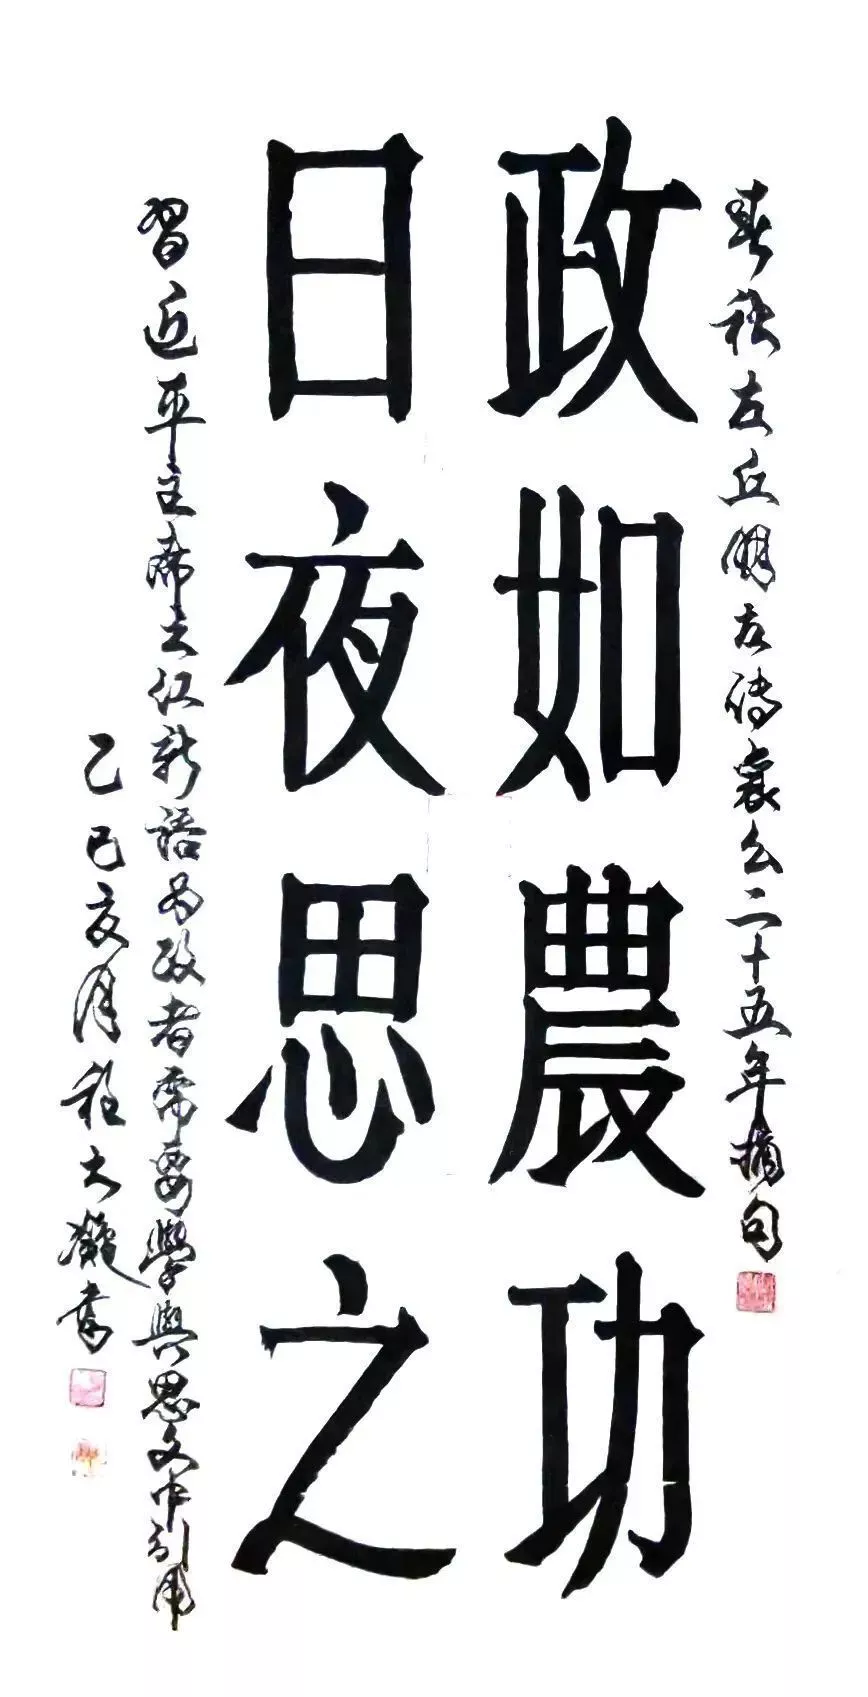 春秋左丘明左傳襄公二十五年摘句
政如農功
日夜思之
習近平主席之江新語为政者需要學與思文中引用
乙巳亥月程大書